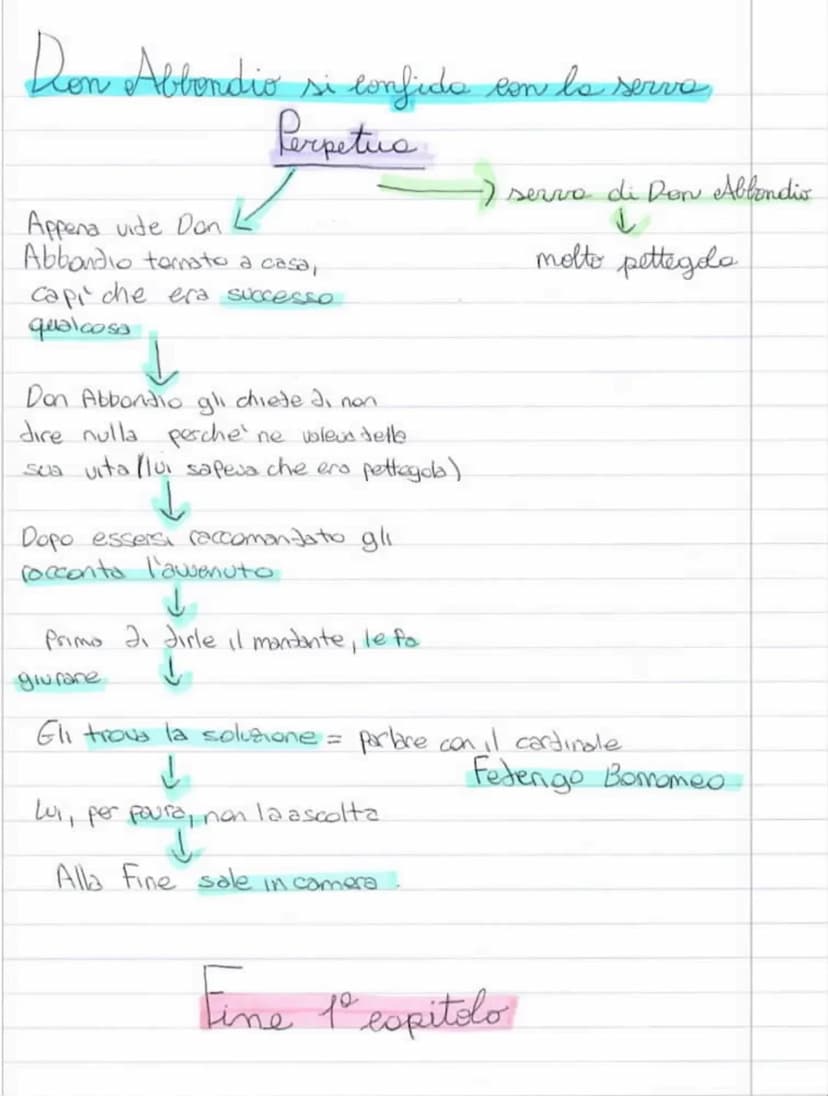 Don Abbondio si confida con la serva
Perpetua
→ serva di Don Abbondio
↓
molto pettegola
Appena vide Don
Abbondio tornato a casa,
capì che era successo
qualcosa
↓
Don Abbondio gli chiede di non
dire nulla perché ne voleva della
sua vita (lui sapeva che era pettegola)
↓
Dopo essersi raccomandato gli
racconta l'avvenuto
↓
Prima di dirle il mandante, le fa
giurare ↓
Gli trova la soluzione = parlare con il cardinale
Federigo Borromeo
↓
Lui, per paura, non la ascolta
↓
Alla fine sale in camera.
Fine 1° capitolo